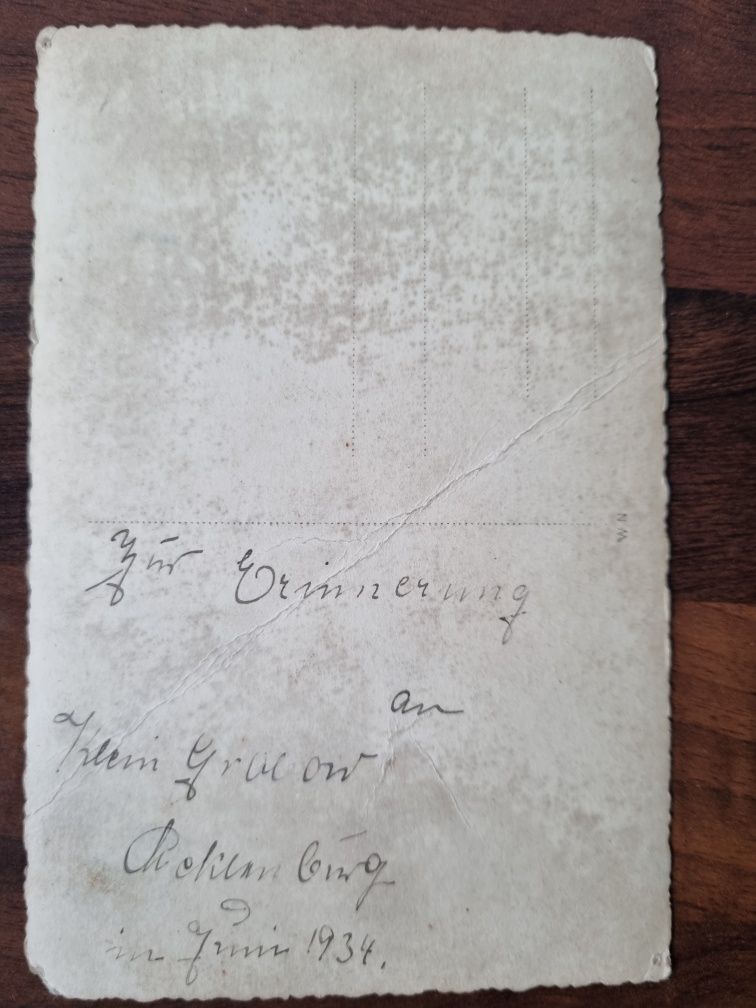 WN
Zur Erinnerung
an
Klein Grabow
Meklenburg
im Juni 1934.